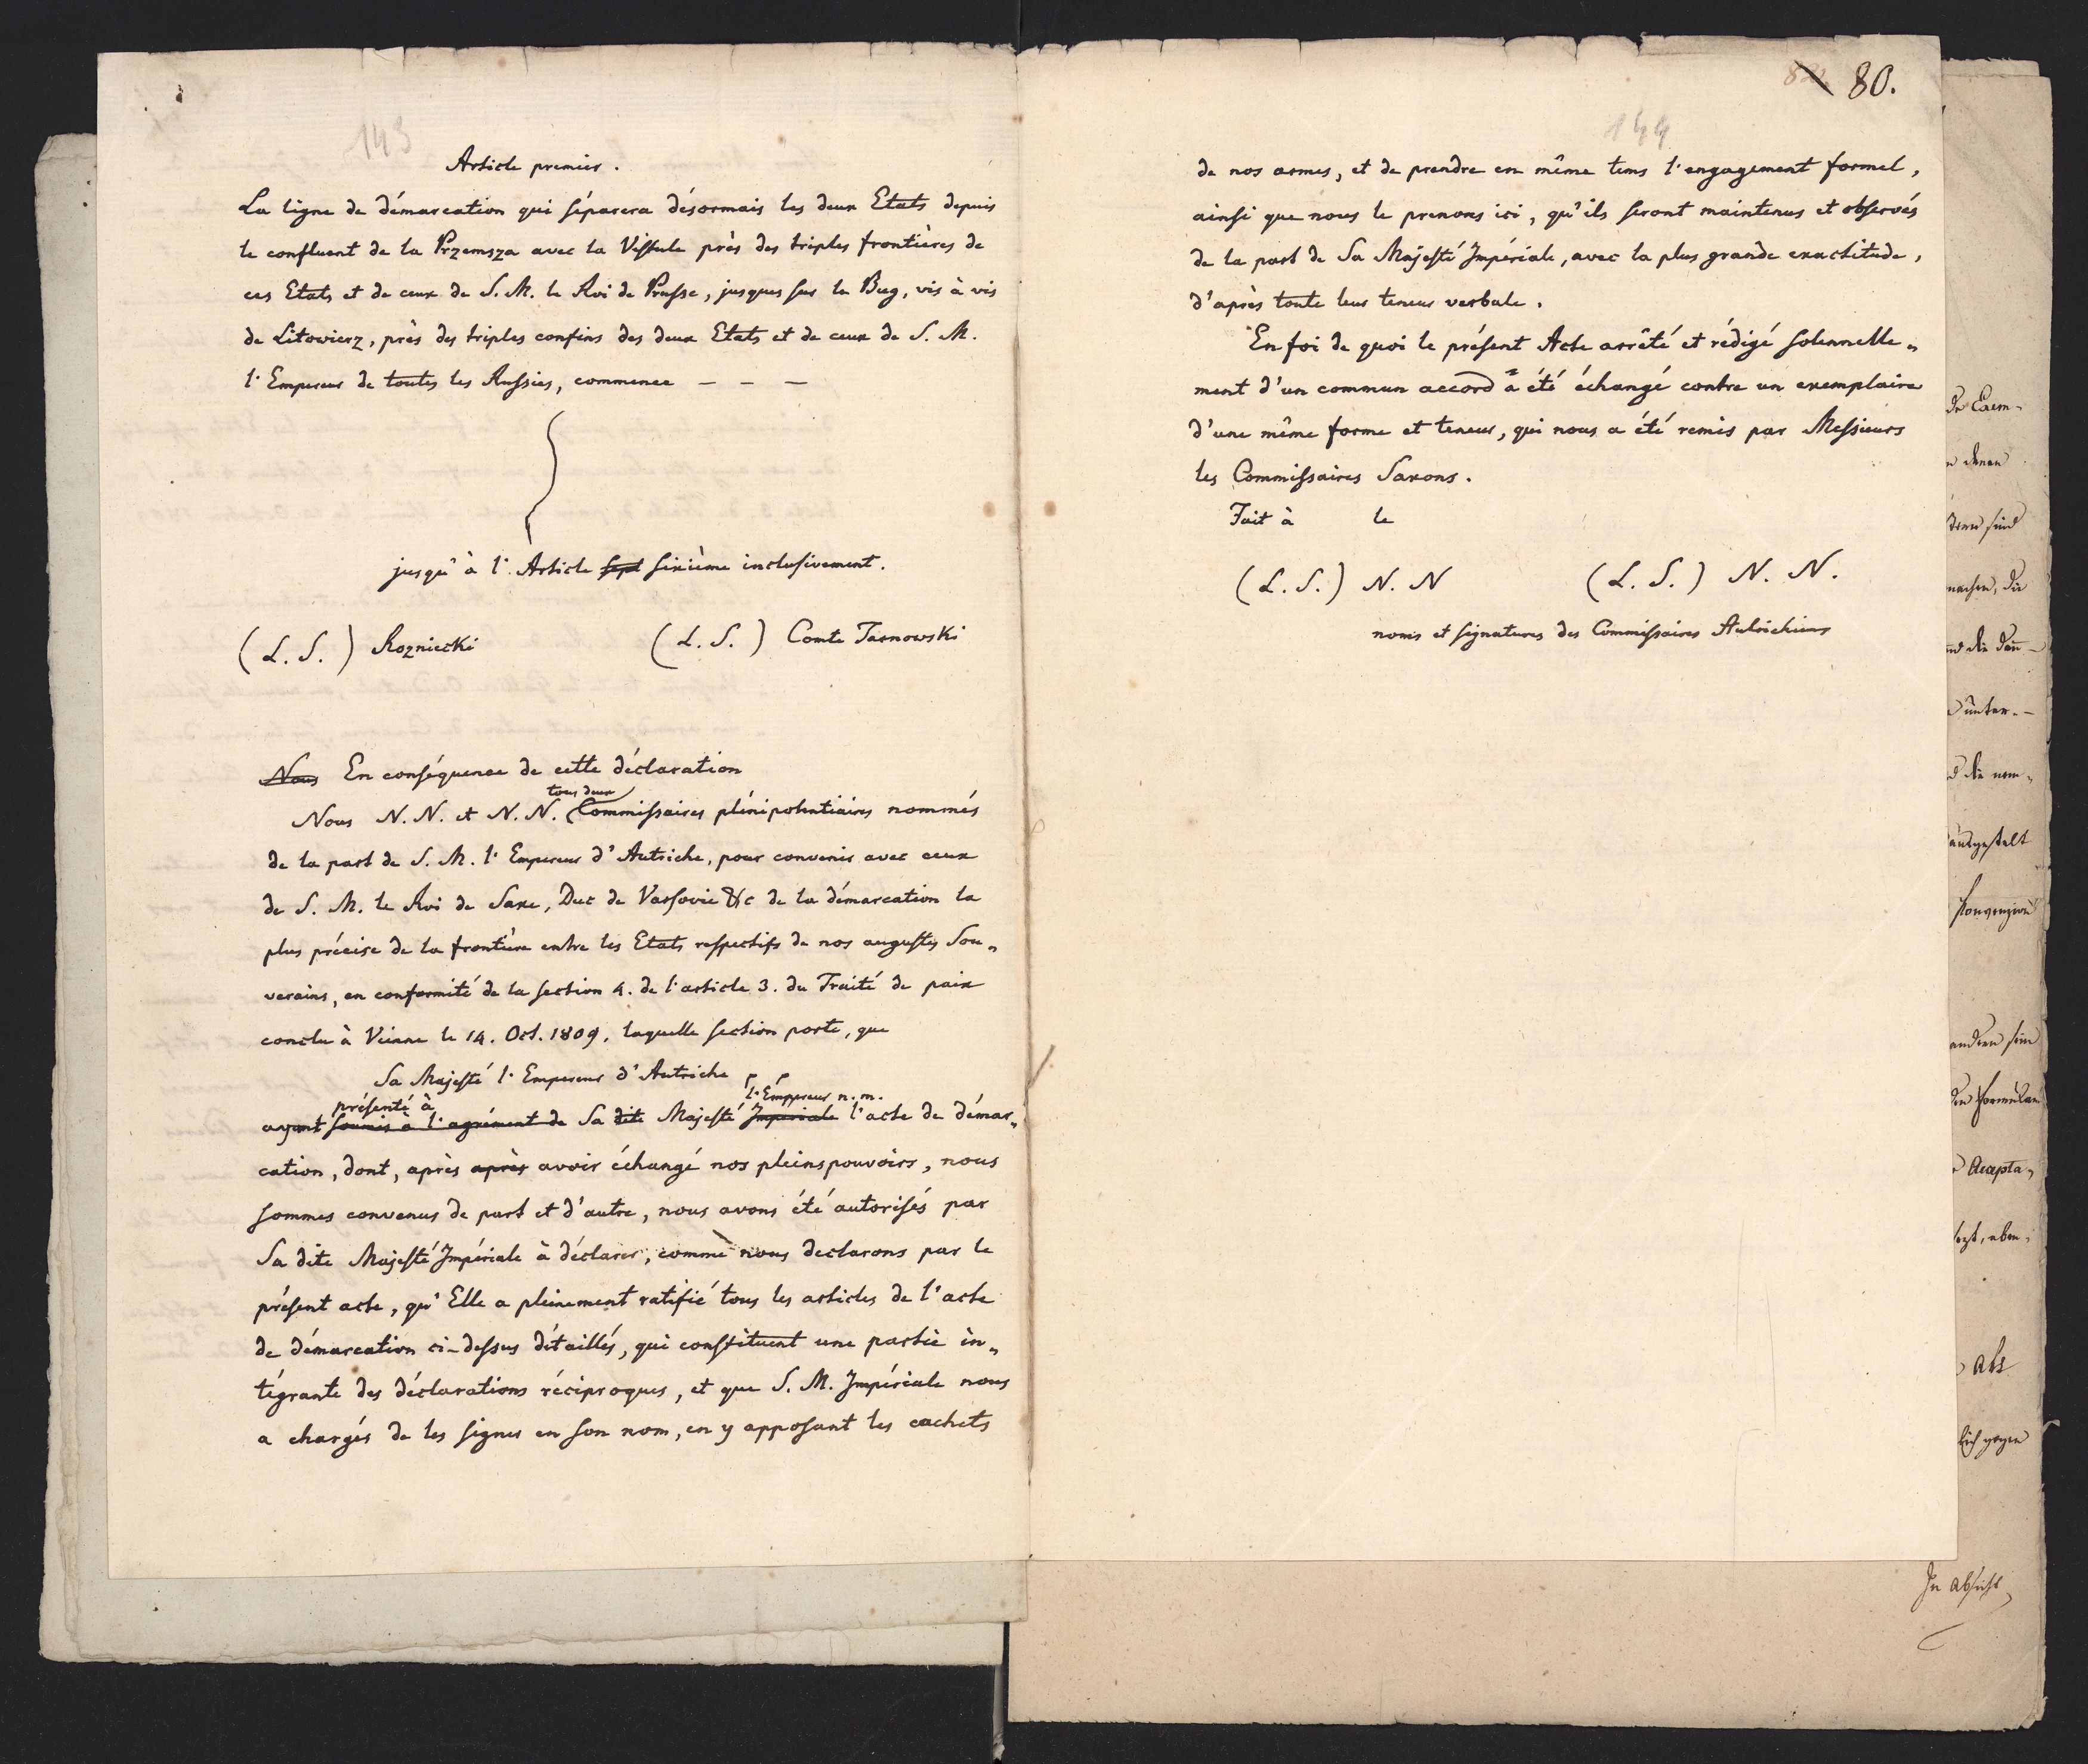 143
Article premier.
La ligne de démarcation qui séparera désormais les deux Etats depuis
le confluent de la Przemsza avec la Vistule près des triples frontières de
ces Etats et de ceux de S. M. le Roi de Prusse, jusques sur le Bug, vis à vis
de Litowierz, près des triples confins des deux Etats et de ceux de S. M.
l'Empereur de toutes les Russies, commence – – –
jusqu'à l'Article sept sixième inclusivement.
(L. S.) Rozniecki (L. S.) Comte Tarnowski
Nous En conséquence de cette déclaration
tous deux
Nous N. N. et N. N. Commissaires plénipotentiaires nommés
de la part de S. M. l'Empereur d'Autriche, pour convenir avec ceux
de S. M. le Roi de Saxe, Duc de Varsovie &c de la démarcation la
plus précise de la frontière entre les Etats respectifs de nos augustes Sou„
verains, en conformité de la section 4. de l'article 3. du Traité de paix
conclu à Vienne le 14. Oct. 1809, laquelle section porte, que
Sa Majesté l'Empereur d'Autriche
présenté à l'Emppreur n. m.
ayant soumis à l'agrément de Sa dite Majesté Imperiale l'acte de démar„
cation, dont, après après avoir échangé nos pleinspouvoirs, nous
sommes convenus de part et d'autre, nous avons été autorisés par
Sa dite Majesté Impériale à déclarer, comme nous declarons par le
présent acte, qu'Elle a pleinement ratifié tous les articles de l'acte
de démarcation ci-dessus détaillés, qui constituent une partie in„
tégrante des déclarations réciproques, et que S. M. Impériale nous
a chargés de les signer en son nom, en y apposant les cachets
80.
144
de nos armes, et de prendre en même tems l'engagement formel,
ainsi que nous le prenons ici, qu'ils seront maintenus et observés
de la part de Sa Majesté Impériale, avec la plus grande exactitude,
d'après toute leur teneur verbale.
En foi de quoi le présent Acte arrêté et rédigé solennelle„
ment d'un commun accord a été échangé contre un exemplaire
d'une même forme et teneur, qui nous a été remis par Messieurs
les Commissaires Saxons.
Fait à le
(L. S.) N. N (L. S.) N. N.
noms et signatures des Commissaires Autrichiens
de Exem„
denen
sind
die
unter.–
die nem„
ausgestelt
andern sein
Accepta„
eben„
als
gegen
In Absicht